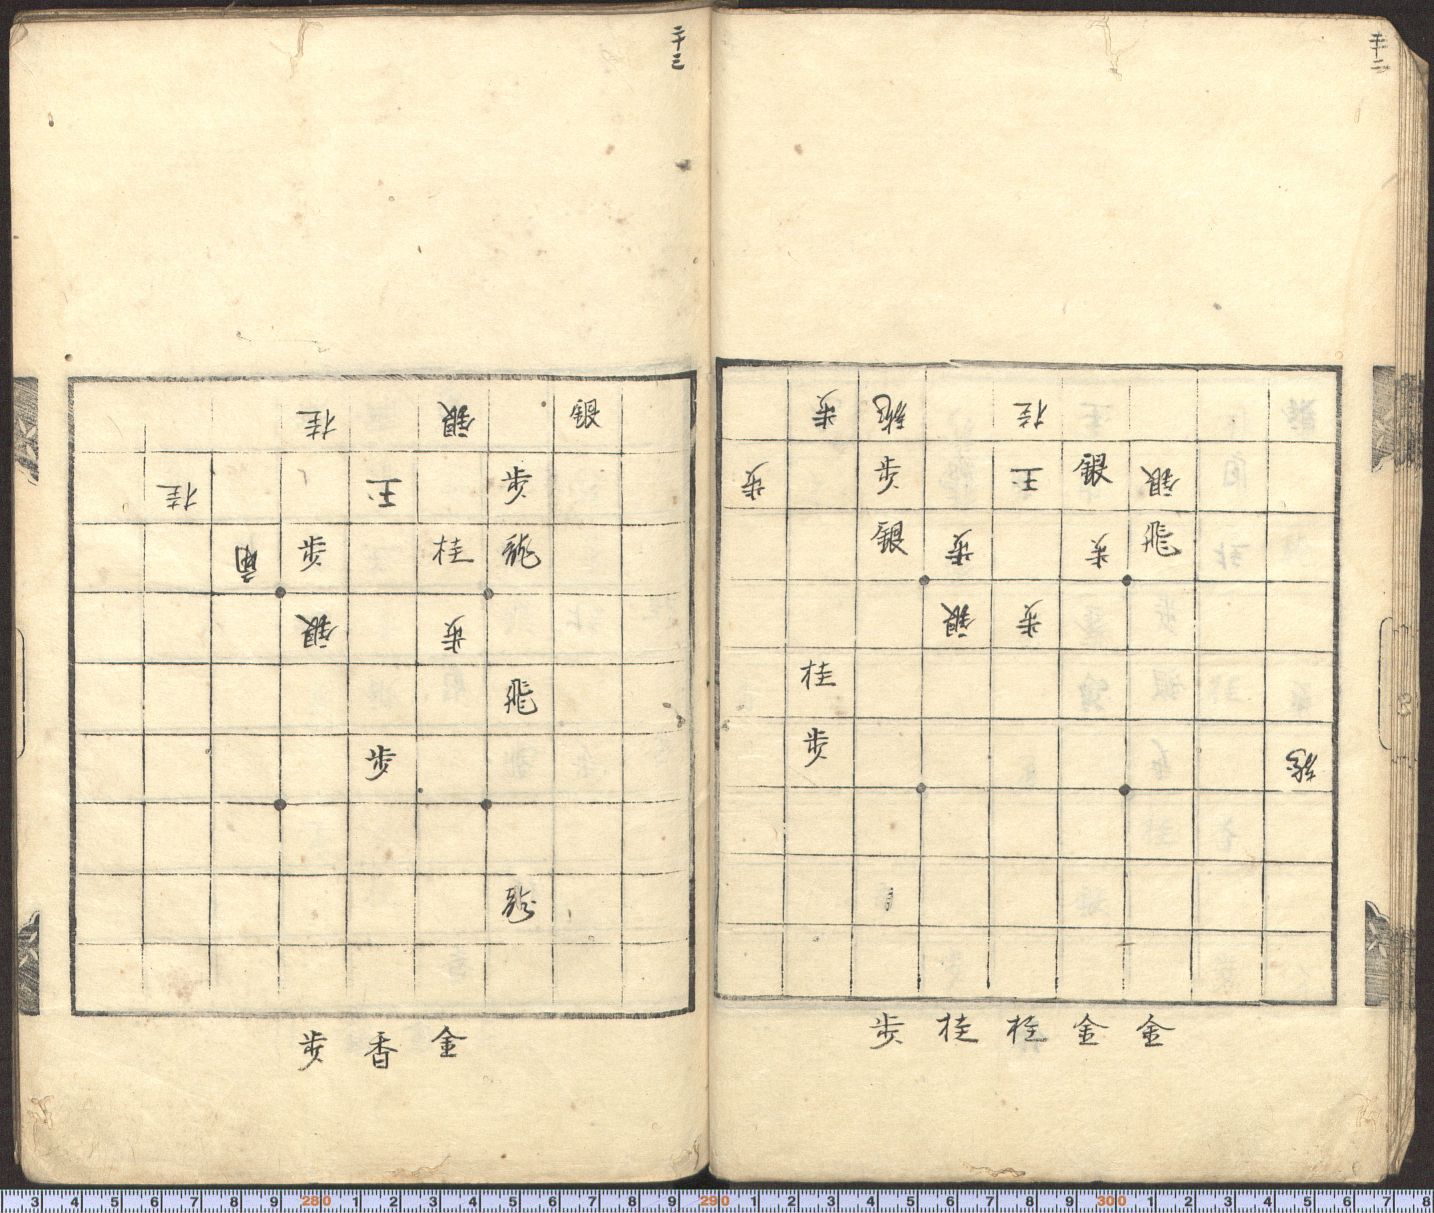 三十二
歩 龍 桂
歩 歩 王 銀 銀
銀 歩 歩 飛
銀 歩
桂
歩
金 金 桂 桂 歩
三十三
桂 銀 銀
桂 王 歩
歩 桂 龍
銀 歩
飛
歩
金 香 歩
3 4 5 6 7 8 9 280 1 2 3 4 5 6 7 8 9 290 1 2 3 4 5 6 7 8 9 300 1 2 3 4 5 6 7 8